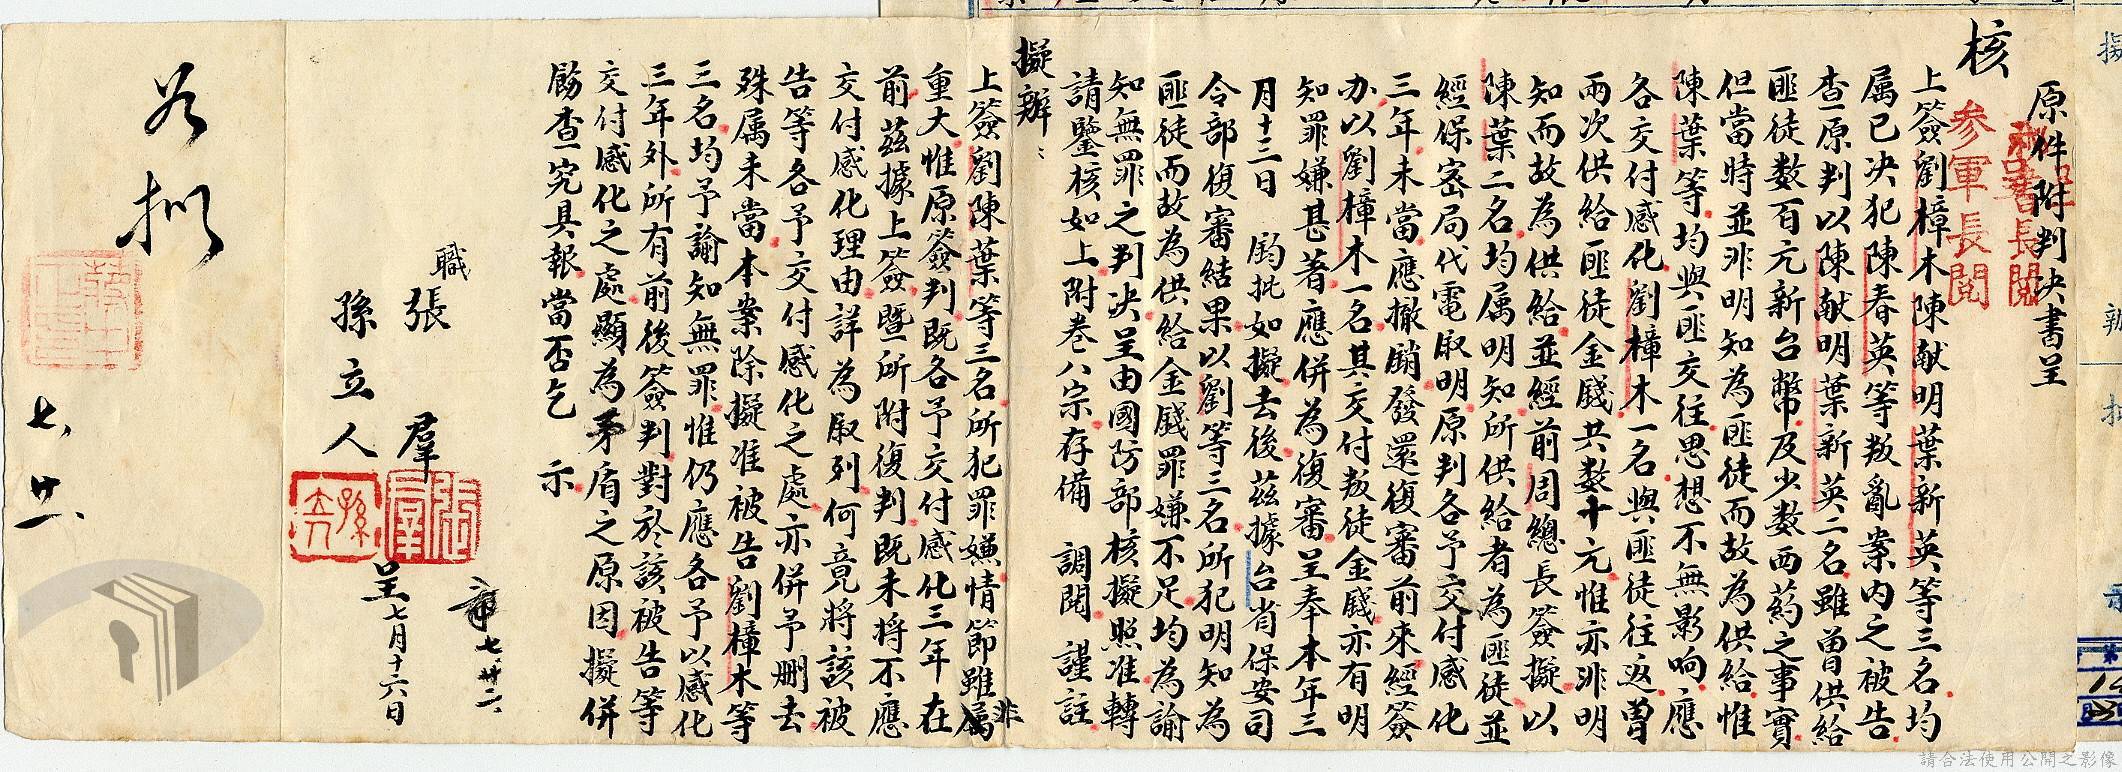 原件附判决書呈
核
秘書長閱
参軍長閱
上簽劉樟木陳献明葉新英等三名均
属已决犯陳春英等叛亂案内之被告
查原判以陳献明葉新英二名雖曽供給
匪徒数百元新台幣及少数西葯之事實
但當時並非明知為匪徒而故為供給惟
陳葉等均與匪交往思想不無影响應
各交付感化劉樟木一名與匪徒往返曽
兩次供給匪徒金錢共数十元惟亦非明
知而故為供給並經前周總長簽擬以
陳葉二名均属明知所供給者為匪徒並
經保密局代電敀明原判各予交付感化
三年未當應撤銷發還復審前來經簽
办以劉樟木一名其交付叛徒金錢亦有明
知罪嫌甚著應併為復審呈奉本年三
月十三日 鈞批如擬去後茲據台省保安司
令部復審結果以劉等三名所犯明知為
匪徒而故為供給金錢罪嫌不足均為諭
知無罪之判决呈由國防部核擬照准轉
請鑒核如上附卷八宗存備 調閱 謹註
擬辦：
上簽劉陳葉等三名所犯罪嫌情節雖属非
重大惟原簽判既各予交付感化三年在
前茲據上簽暨所附復判既未將不應
交付感化理由詳為敀列何竟將該被
告等各予交付感化之處亦併予删去
殊属未當本案除擬准被告劉樟木等
三名均予諭知無罪惟仍應各予以感化
三年外所有前後簽判對於該被告等
交付感化之處顯為矛盾之原因擬併
飭查究具報當否乞 示
職張羣
孫立人
呈七月十六日
七、廿二、
如擬
七、廿一、
請合法使用公開之影像